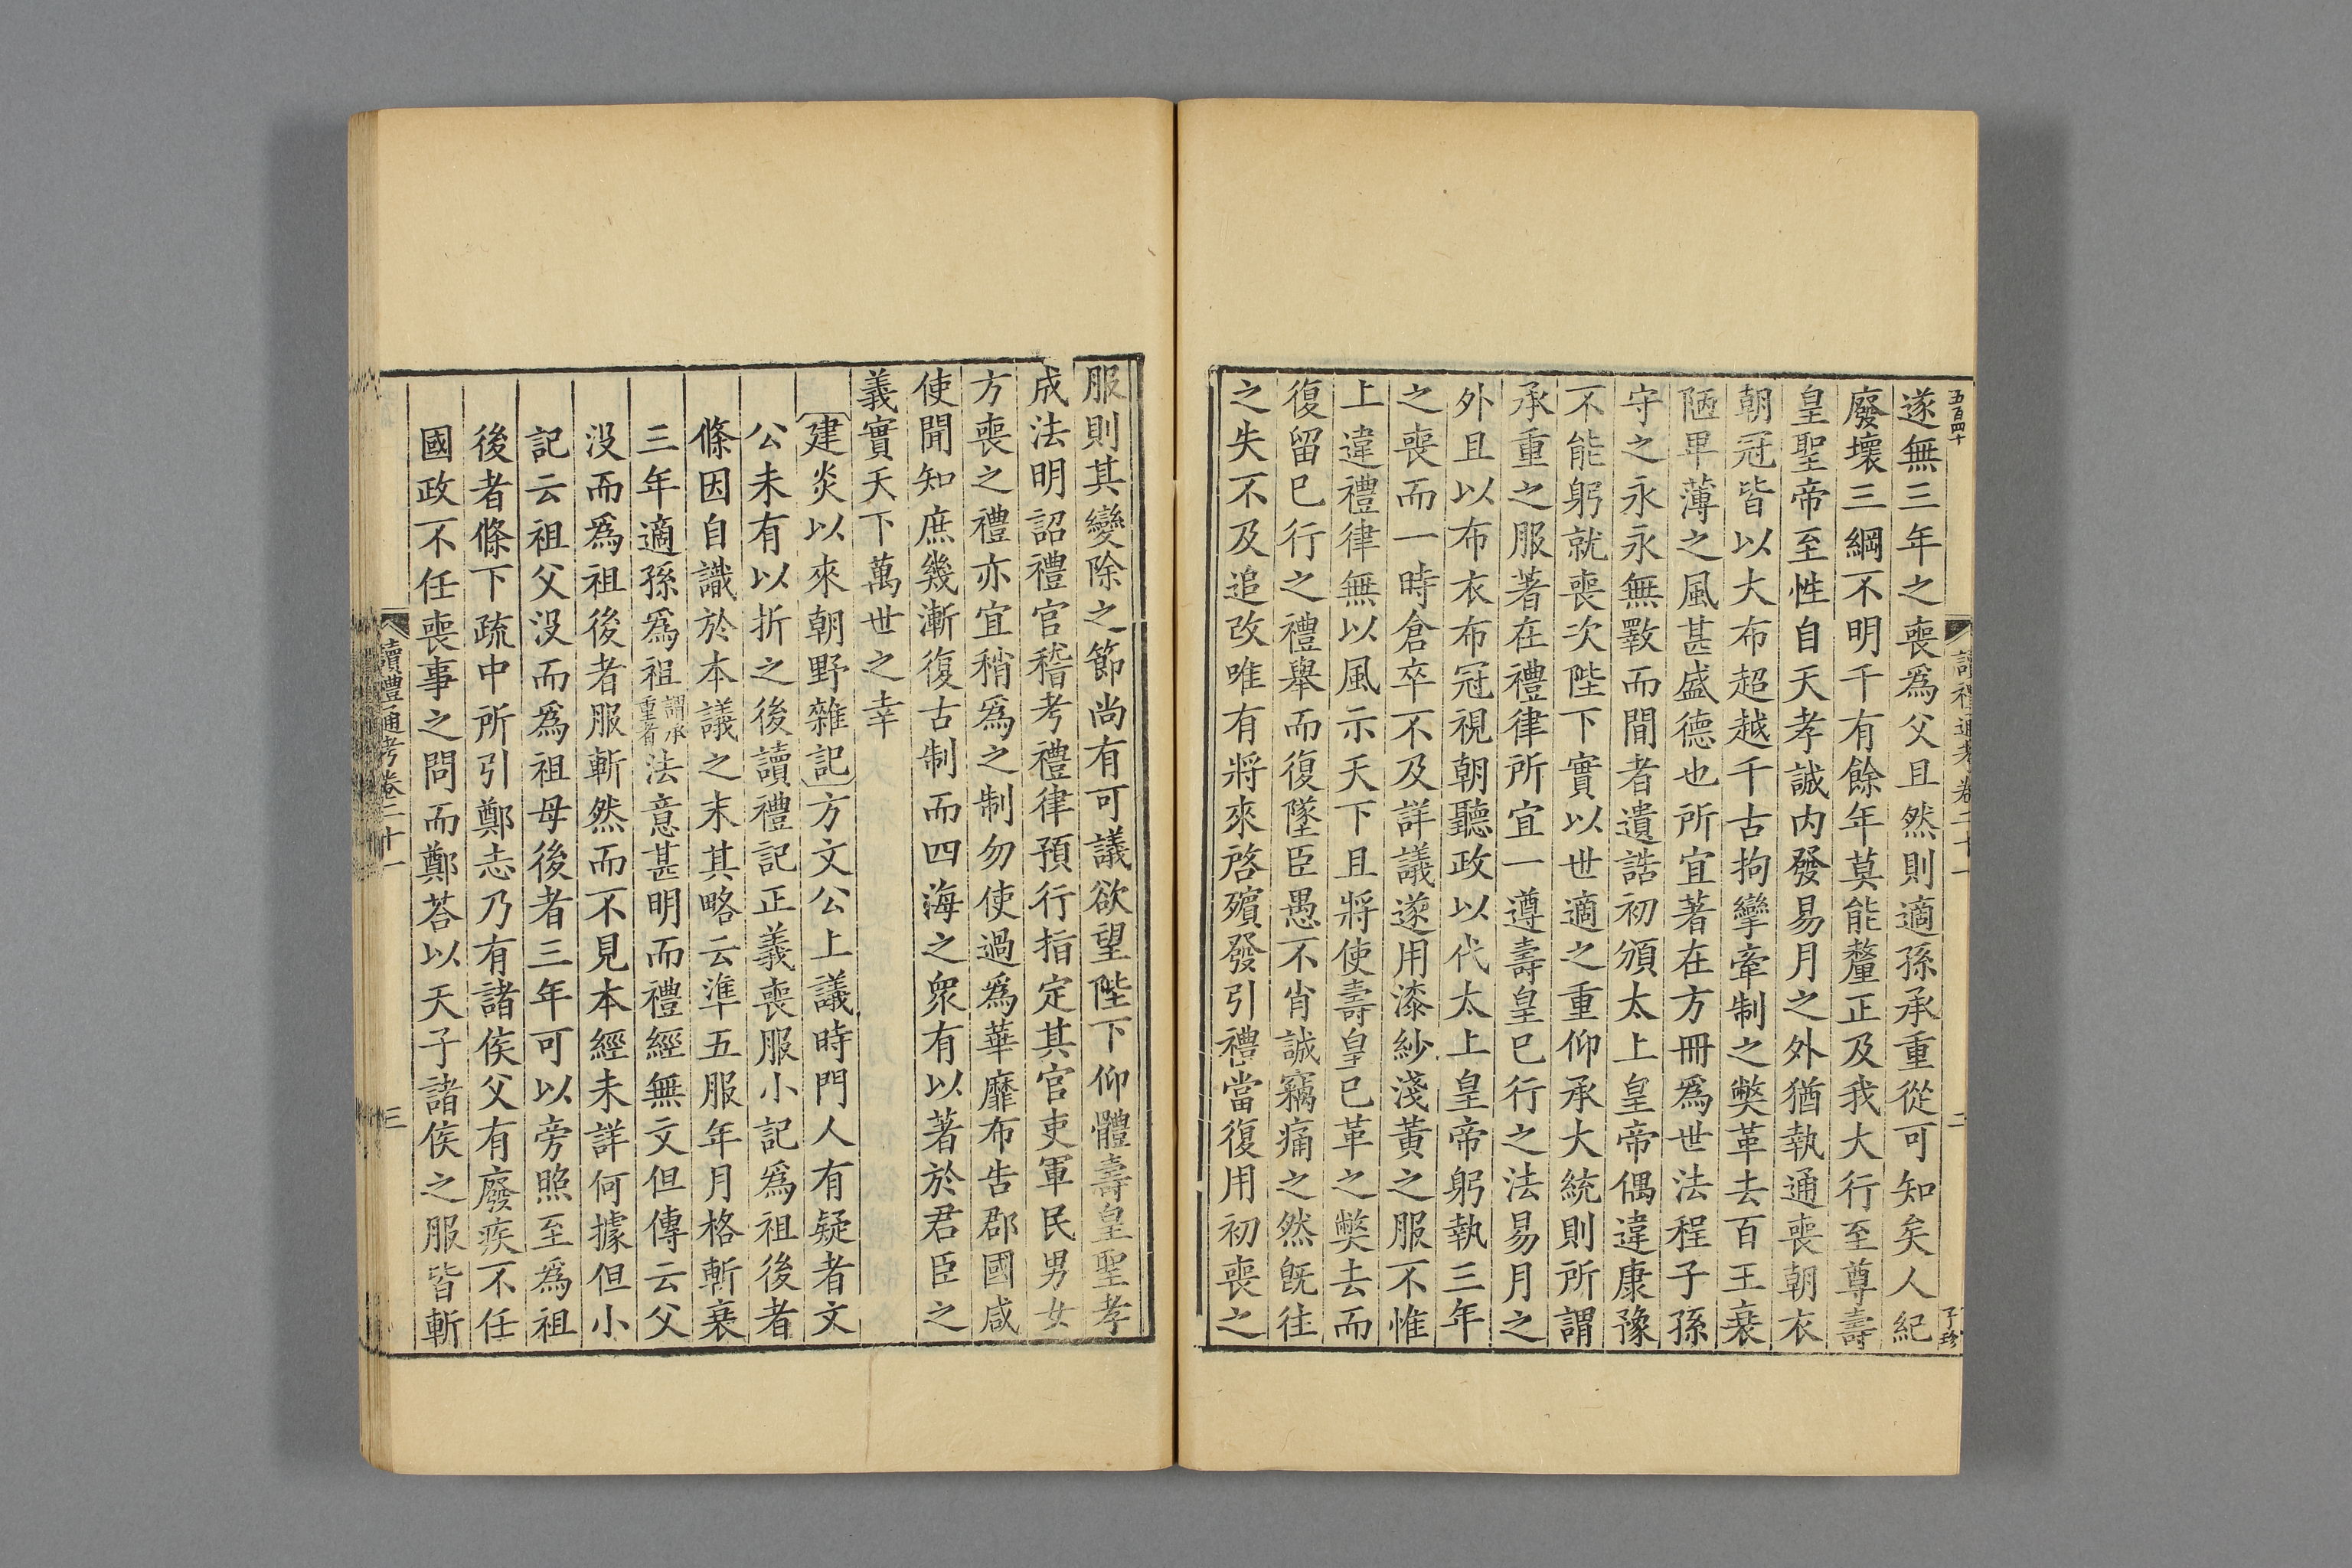 五百四十
讀禮通考卷二十一
二
子珍
遂無三年之喪爲父且然則適孫承重從可知矣人紀
廢壞三綱不明千有餘年莫能釐正及我大行至尊壽
皇聖帝至性自天孝誠内發易月之外猶執通喪朝衣
朝冠皆以大布超越千古拘攣牽制之獘革去百王衰
陋卑薄之風甚盛德也所宜著在方冊爲世法程子孫
守之永永無斁而間者遺誥初頒太上皇帝偶違康豫
不能躬就喪次陛下實以世適之重仰承大統則所謂
承重之服著在禮律所宜一遵壽皇已行之法易月之
外且以布衣布冠視朝聽政以代太上皇帝躬執三年
之喪而一時倉卒不及詳議遂用漆紗淺黃之服不惟
上違禮律無以風示天下且將使壽皇已革之獘去而
復留已行之禮舉而復墜臣愚不肖誠竊痛之然旣往
之失不及追改唯有將來啓殯發引禮當復用初喪之
服則其變除之節尚有可議欲望陛下仰體壽皇聖孝
成法明詔禮官稽考禮律預行指定其官吏軍民男女
方喪之禮亦宜稍爲之制勿使過爲華靡布告郡國咸
使聞知庶幾漸復古制而四海之衆有以著於君臣之
義實天下萬世之幸
建炎以來朝野雜記方文公上議時門人有疑者文
公未有以折之後讀禮記正義喪服小記爲祖後者
條因自識於本議之末其略云準五服年月格斬衰
三年適孫爲祖謂承重者法意甚明而禮經無文但傳云父
没而爲祖後者服斬然而不見本經未詳何據但小
記云祖父没而爲祖母後者三年可以旁照至爲祖
後者條下疏中所引鄭志乃有諸侯父有廢疾不任
國政不任喪事之問而鄭荅以天子諸侯之服皆斬
讀禮通考卷二十一
三